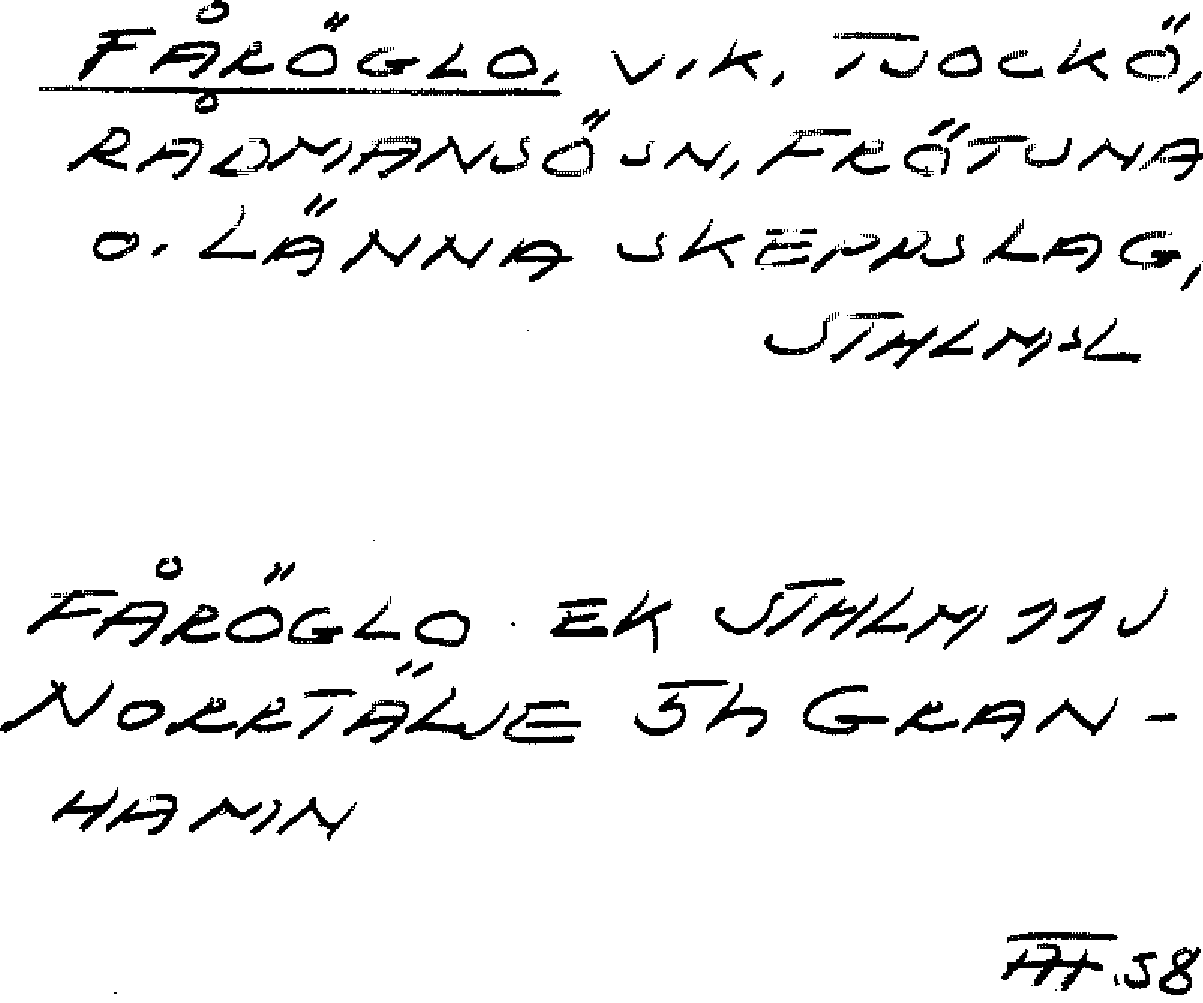 FÅRÖGLO, VIK, TJOCKÖ,
RÅDMANSÖ SN, FRÖTUNA
O. LÄNNA SKEPPSLAG,
STHLMSL
FÅRÖGLO EK STHLM 11 J
NORRTÄLJE 5h GRAN-
HAMN
58